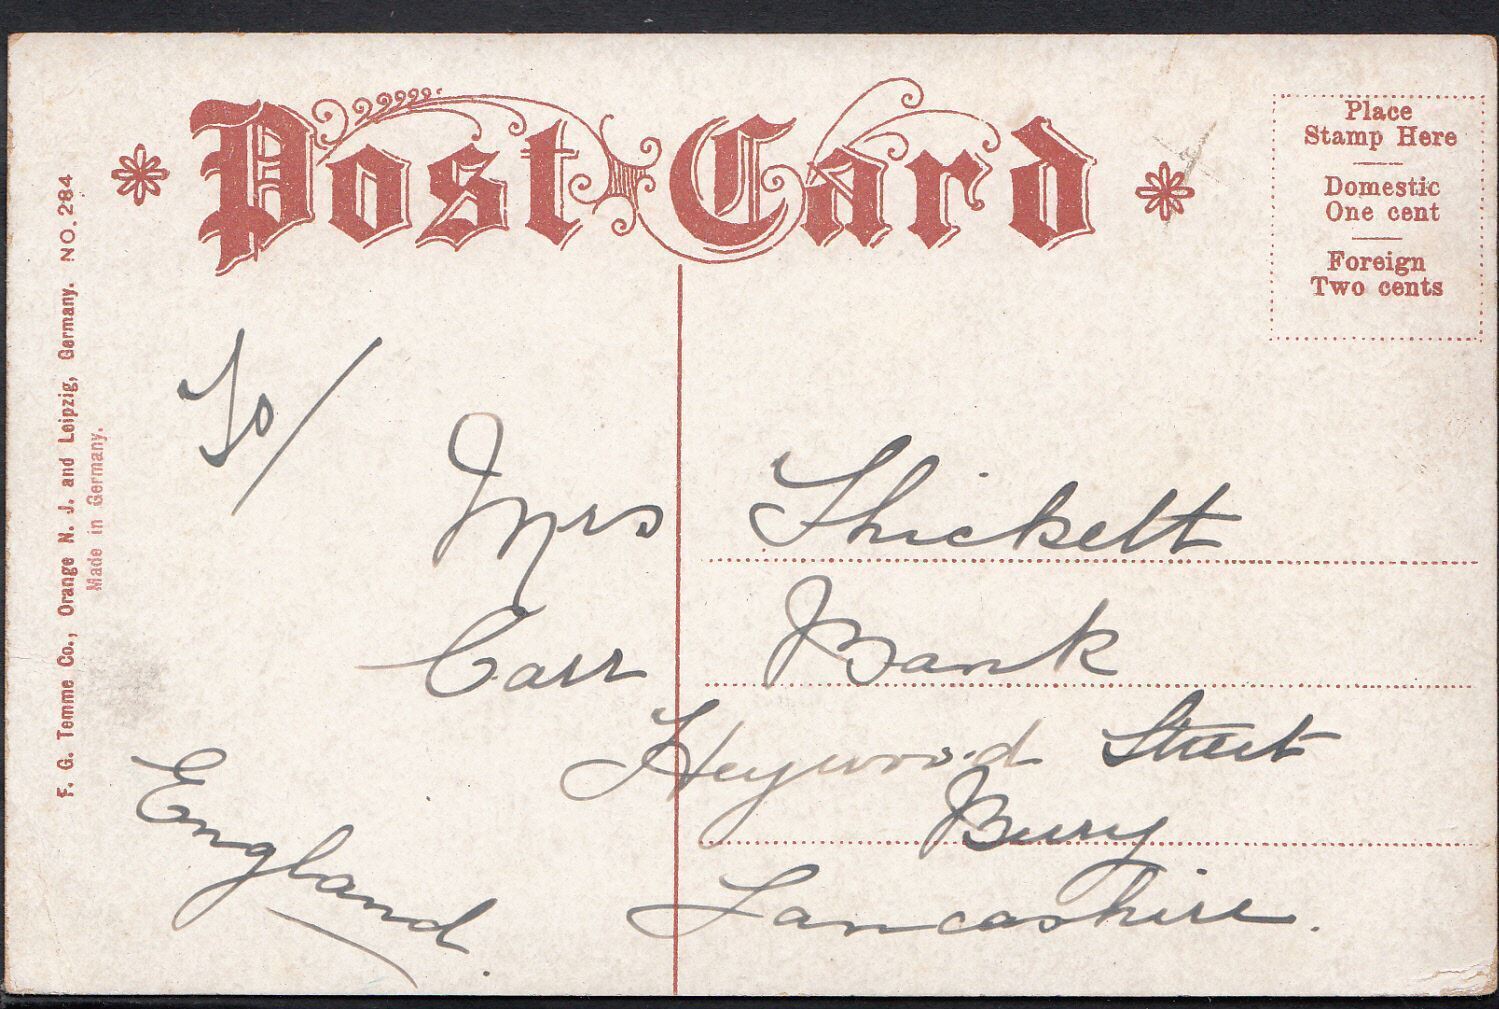 Post Card
Place
Stamp Here
Domestic
One cent
Foreign
Two cents
F. G. Temme Co., Orange N. J. and Leipzig, Germany. NO. 284
Made in Germany.
To/
Mrs Thickett
Carr Bank
Heywood Street
Bury
Lancashire.
England.